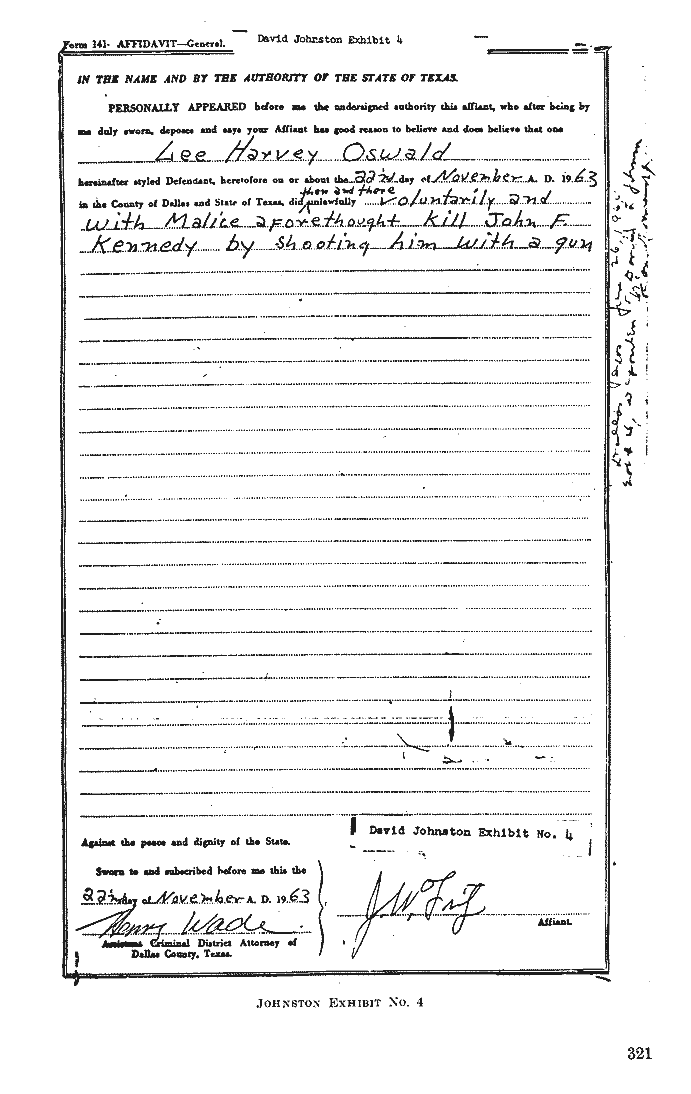 Form 141- AFFIDAVIT—General.
David Johnston Exhibit 4
IN THE NAME AND BY THE AUTHORITY OF THE STATE OF TEXAS.
PERSONALLY APPEARED before me the undersigned authority this affiant, who after being by
me duly sworn, deposes and says your Affiant has good reason to believe and does believe that one
Lee Harvey Oswald
hereinafter styled Defendant, heretofore on or about the 22nd day of November A. D. 1963
then and there
in the County of Dallas and State of Texas, did unlawfully voluntarily and
with Malice aforethought kill John F.
Kennedy by shooting him with a gun
Against the peace and dignity of the State.
David Johnston Exhibit No. 4
Sworn to and subscribed before me this the
22nd day of November A. D. 1963
Henry Wade
J. W. Fritz
Affiant.
Assistant Criminal District Attorney of
Dallas County, Texas.
JOHNSTON EXHIBIT NO. 4
321